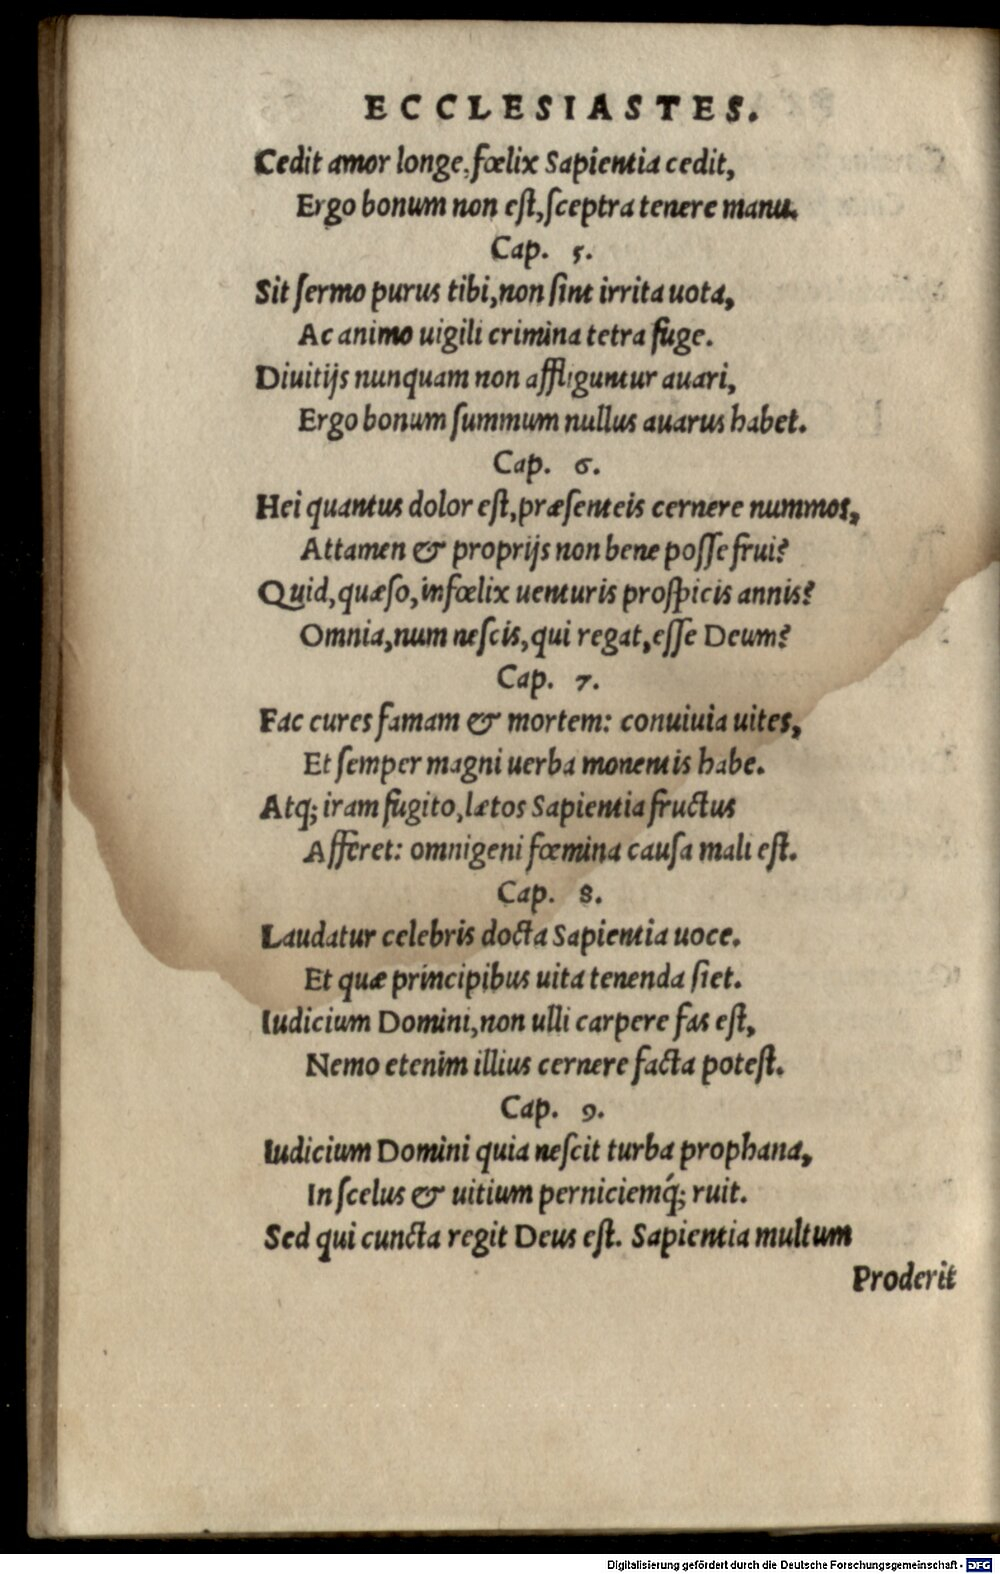 ECCLESIASTES.
Cedit amor longe, fœlix Sapientia cedit,
Ergo bonum non eſt, ſceptra tenere manu.
Cap. 5.
Sit ſermo purus tibi, non ſint irrita uota,
Ac animo uigili crimina tetra fuge.
Diuitijs nunquam non affliguntur auari,
Ergo bonum ſummum nullus auarus habet.
Cap. 6.
Hei quantus dolor eſt, præſenteis cernere nummos,
Attamen & proprijs non bene poſſe frui?
Quid, quæſo, infœlix uenturis proſpicis annis?
Omnia, num neſcis, qui regat, eſſe Deum?
Cap. 7.
Fac cures famam & mortem: conuiuia uites,
Et ſemper magni uerba monentis habe.
Atq; iram fugito, lætos Sapientia fructus
Afferet: omnigeni fœmina cauſa mali eſt.
Cap. 8.
Laudatur celebris docta Sapientia uoce.
Et quæ principibus uita tenenda ſiet.
Iudicium Domini, non ulli carpere fas eſt,
Nemo etenim illius cernere facta poteſt.
Cap. 9.
Iudicium Domini quia neſcit turba prophana,
In ſcelus & uitium perniciemq́; ruit.
Sed qui cuncta regit Deus eſt. Sapientia multum
Proderit
Digitalisierung gefördert durch die Deutsche Forschungsgemeinschaft - DFG